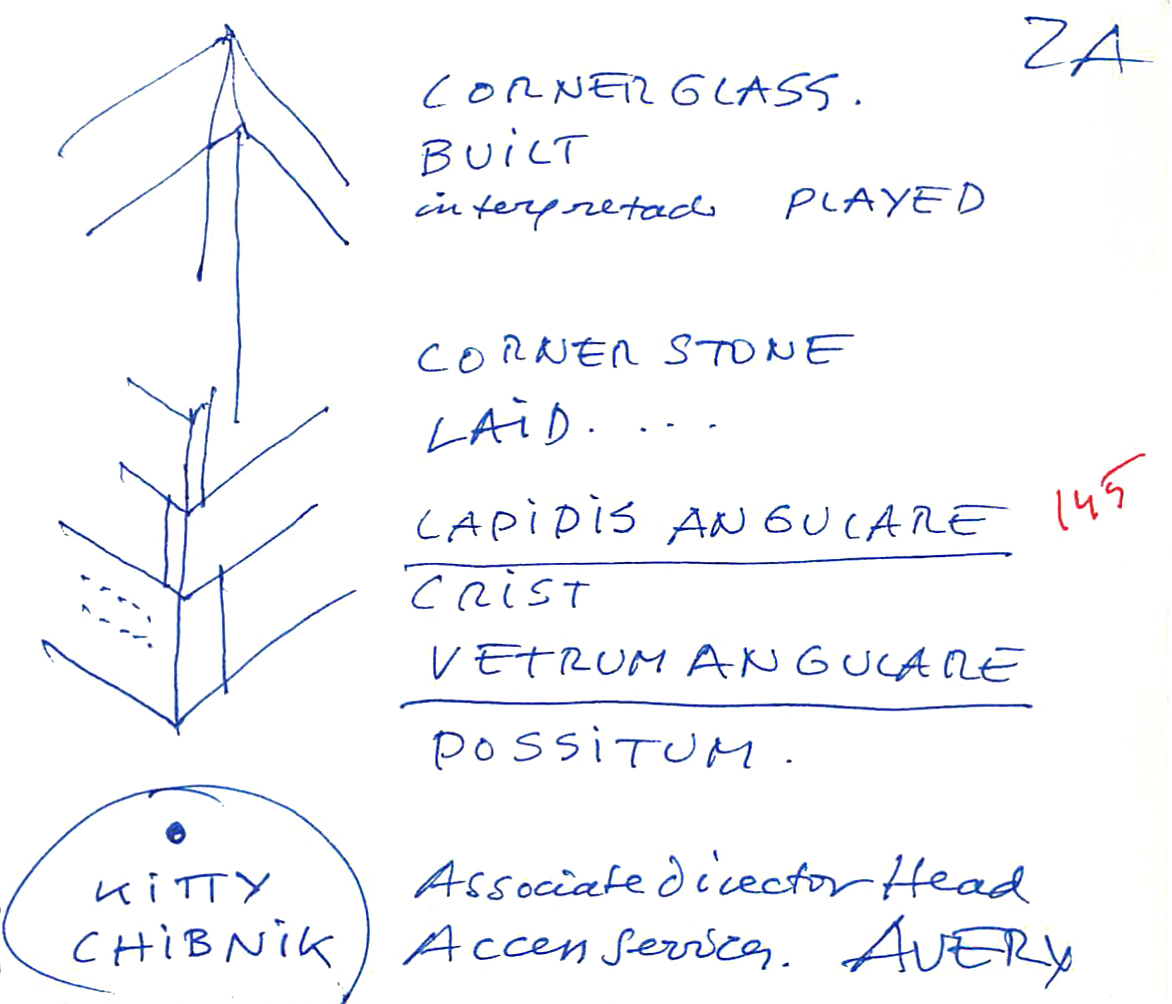 2A
CORNER GLASS.
BUiLT
interpretado PLAYED
CORNER STONE
LAiD. ....
LAPiDiS ANGULARE 145
CRiST
VETRUM ANGULARE
POSSiTUM.
KiTTY
CHiBNiK
Associate director Head
Acces Services. AVERY